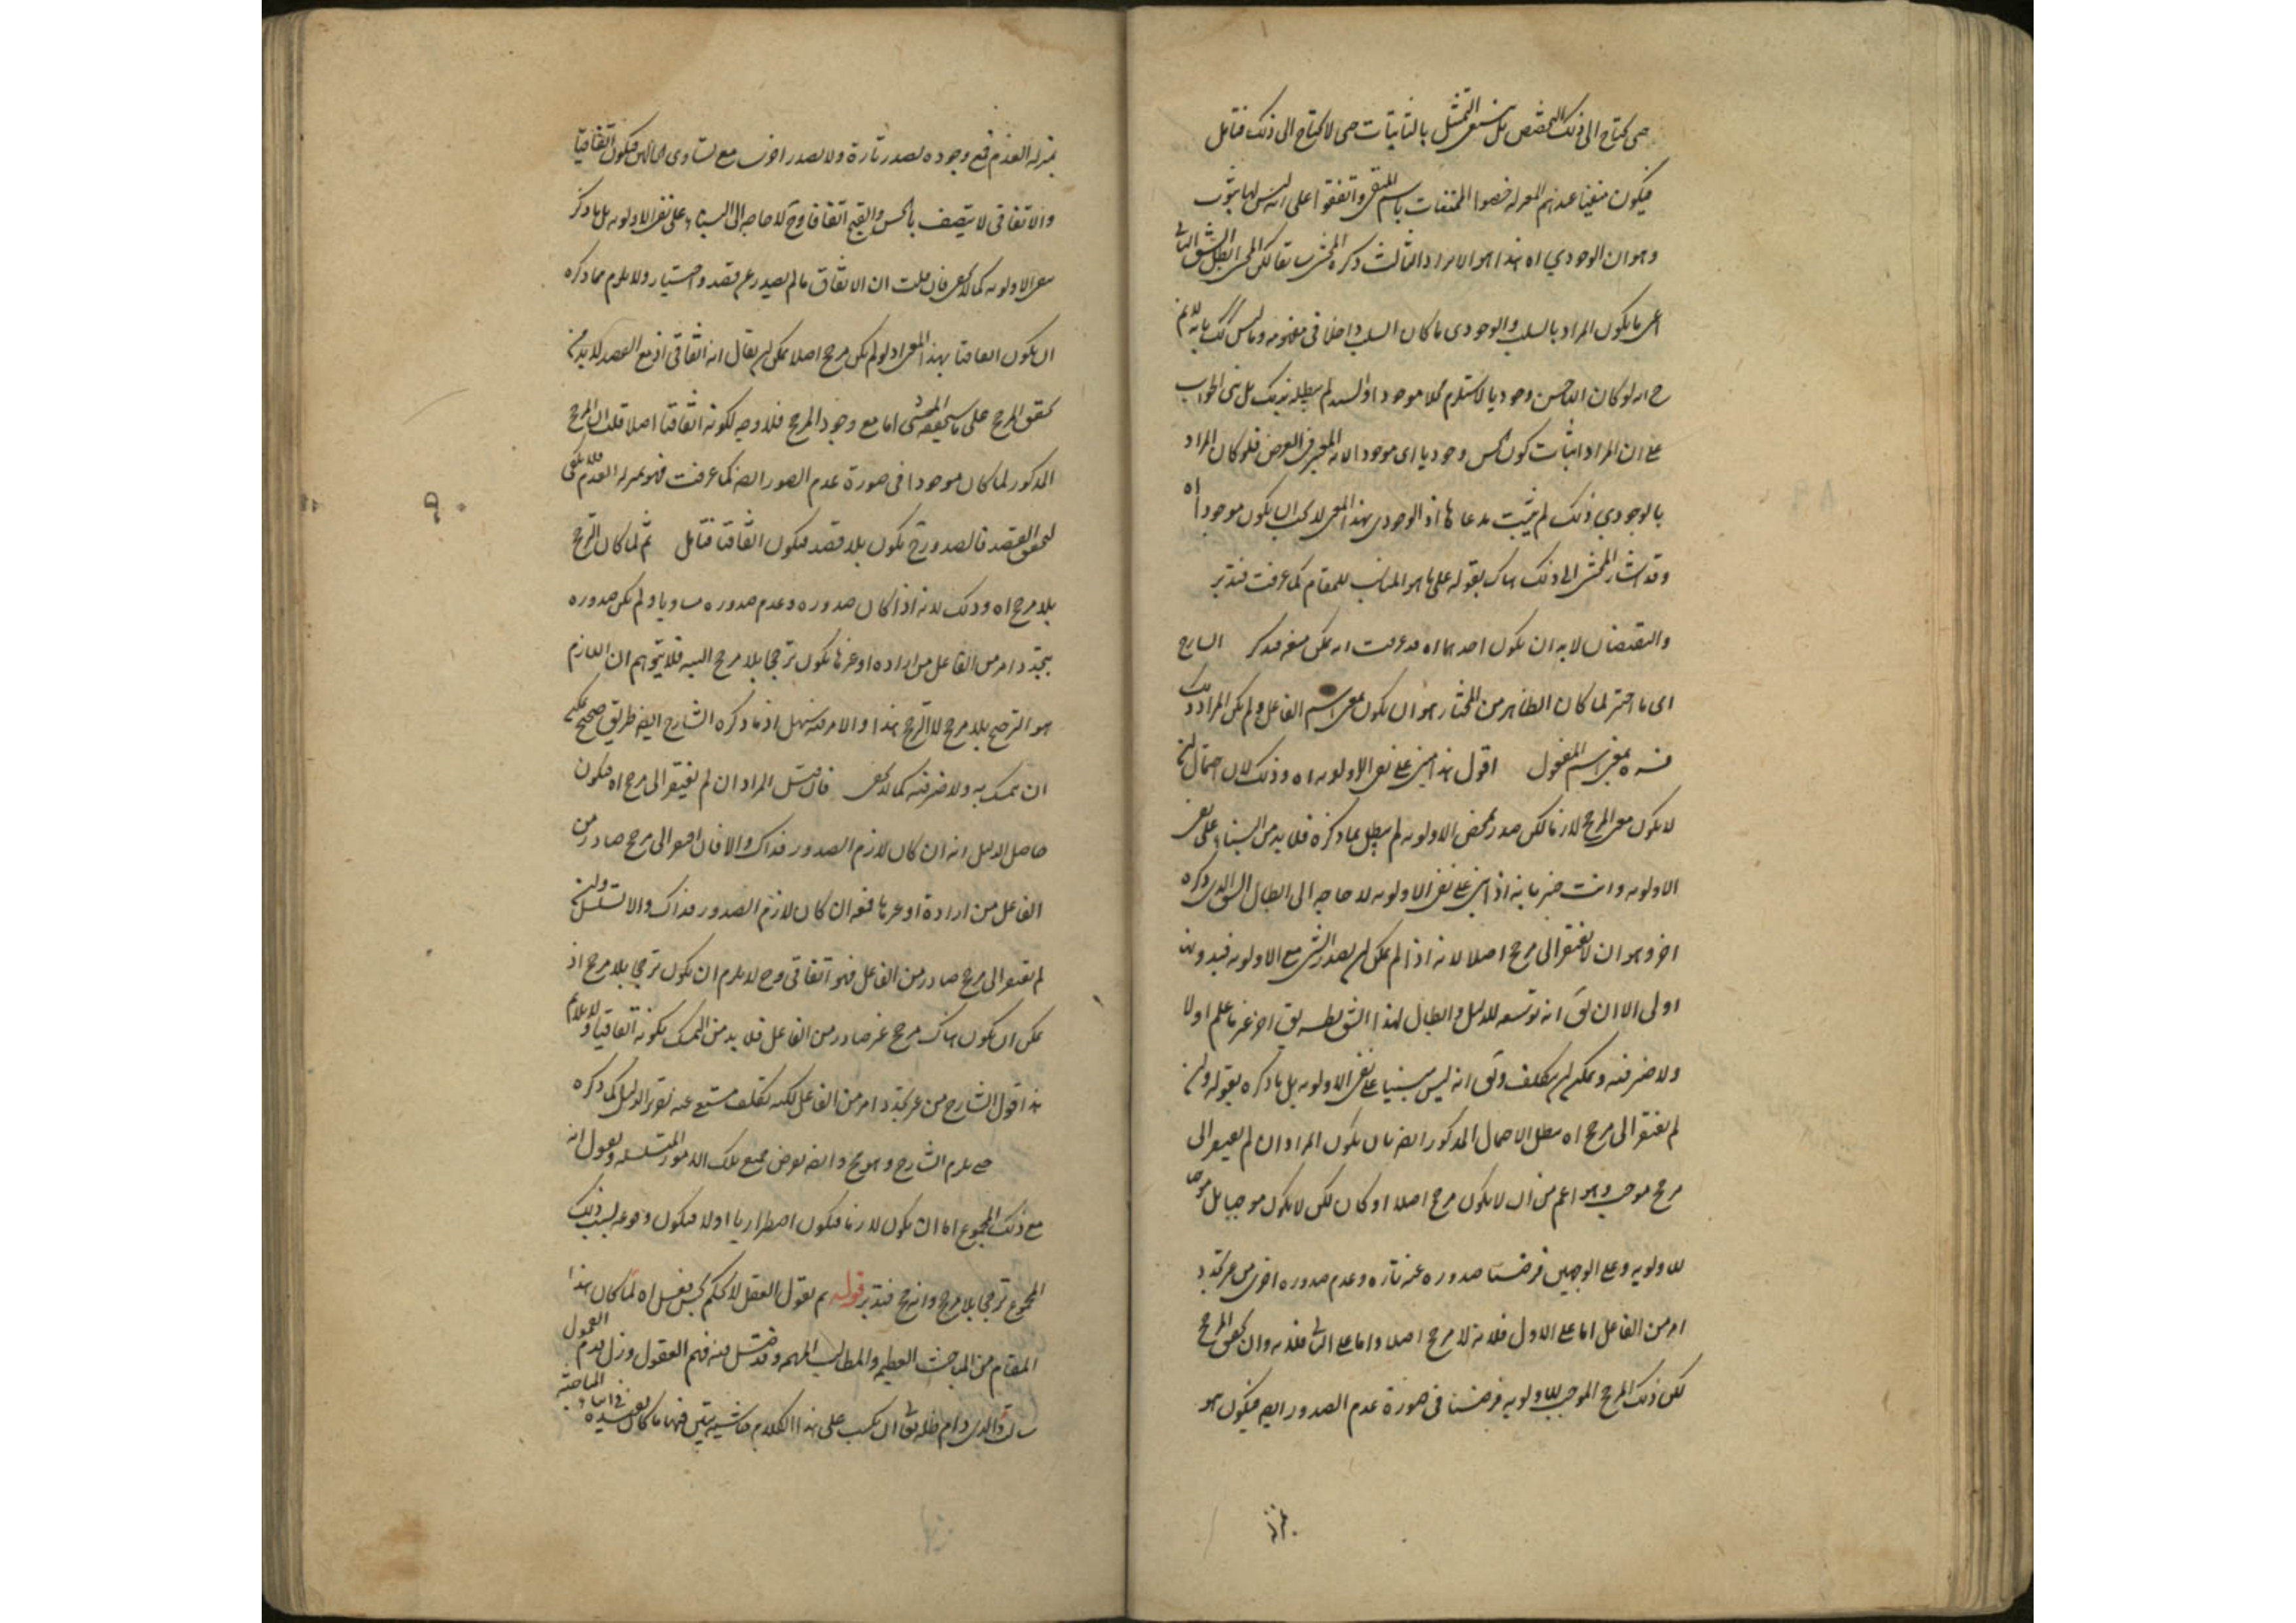 حتى يحتاج الى ذلك التخصيص بل ينبغي التمثيل بالثابتات حتى لا يحتاج الى ذلك فتأمل
فيكون منفيا عندهم المعتزله خصوا الممتنعات باسم المنفى واتفقوا على انه ليس لها ثبوت
وهو ان الوجودي اه هذا هو الايراد الثالث ذكره المحشى سابقا لكن المحشى ابطل الشق الثانى
اعنى ما يكون المراد بالسلب والوجودى ما كان السلب داخلا فى مفهومه وما ليس كك بانه لا يتم
ح انه لو كان الحسن وجوديا لاستلزم محلا موجودا والسيد لم يبطله بذلك بل بنى الجواب
على ان المراد اثبات كون الحسن وجوديا اى موجودا لانه المعتبر فى العرض فلو كان المراد
بالوجودي ذلك لم يثبت مدعاها اذ الوجودى بهذا المعنى لا يجب ان يكون موجودا اه
وقد اشار المحشى الى ذلك هناك بقوله على ما هو المناسب للمقام كما عرفت فتدبر
والنقيضان لا بد ان يكون احدهما اه قد عرفت انه يمكن منعه فتذكر الشارح
اى ما اختير لما كان الظاهر من المختار هو ان يكون بمعنى اسم الفاعل ولم يكن المراد ذلك
فسره بمعنى اسم المفعول اقول هذا مبنى على نفى الاولويه اه وذلك لان احتمال ان
لا يكون مع المرجح لازما لكن صدر بمحض الاولويه لم يبطل بما ذكره فلا بد من البناء على نفى
الاولويه وانت خبير بانه اذا بنى على نفى الاولويه لا حاجه الى ابطال الشق الذى ذكره
اخر وهو ان لا يفتقر الى مرجح اصلا لانه اذا لم يمكن ان يصدر الشى مع الاولويه فبدونها
اولى الا ان يق انه توسعه للدليل وابطال لهذا الشق بطريق اخر غير ما علم اولا
ولا ضير فيه ويمكن ان يتكلف ويق انه ليس مبنيا على نفى الاولويه بل ما ذكره بقوله وان
لم يفتقر الى مرجح اه يبطل الاحتمال المذكور ايضا بان يكون المراد ان لم يفتقر الى
مرجح موجب وهو اعم من ان لا يكون مرجح اصلا او كان لكن لا يكون موجبا بل مرجحا
للاولويه وعلى الوجهين فرضنا صدوره عنه تاره وعدم صدوره اخرى من غير تجدد
امر من الفاعل اما على الاول فلانه لا مرجح اصلا واما على الثانى فلانه وان تحقق المرجح
لكن ذلك المرجح الموجب للاولويه فرضنا فى صورة عدم الصدور ايضا فيكون هو
بمنزله العدم فمع وجوده يصدر تارة ولا يصدر اخرى مع تساوى الحالين فيكون اتفاقيا
والاتفاقى لا يتصف بالحسن والقبح اتفاقا وح لا حاجه الى البناء على نفى الاولويه بل ما ذكر
مع الاولويه كما لا يخفى فان قلت ان الاتفاق ما لم يصدر عن قصد واختيار ولا يلزم مما ذكره
ان يكون اتفاقيا بهذا المعنى اذ لو لم يكن مرجح اصلا يمكن ان يقال انه اتفاقى اذ مع القصد لا بد من
تحقق المرجح على ما سيحققه المحشى اما مع وجود المرجح فلا وجه لكونه اتفاقيا اصلا قلت ان المرجح
المذكور لما كان موجودا فى صورة عدم الصدور ايضا كما عرفت فهو بمنزله العدم فلا يكفى
لتحقق القصد فالصدور ح يكون بلا قصد فيكون اتفاقيا فتأمل ثم لما كان الترجح
بلا مرجح اه وذلك لانه اذا كان صدوره وعدم صدوره مساويا ولم يكن صدوره
بتجدد امر من الفاعل من اراده او غيرها يكون ترجحا بلا مرجح البته فلا يتوهم ان اللازم
هو الترجيح بلا مرجح لا الترجح هذا والامر فيه سهل اذ ما ذكره الشارح ايضا طريق صحيح يمكن
ان يتمسك به ولا ضير فيه كما لا يخفى فان قيل المراد ان لم يفتقر الى مرجح اه فيكون
حاصل الدليل انه ان كان لازم الصدور فذاك والا فان افتقر الى مرجح صادر من
الفاعل من ارادة او غيرها فمعه ان كان لازم الصدور فذاك والا تسلسل وان
لم يفتقر الى مرجح صادر من الفاعل فهو اتفاقى وح لا يلزم ان يكون ترجحا بلا مرجح اذ
يمكن ان يكون هناك مرجح غير صادر من الفاعل فلا بد من التمسك بكونه اتفاقيا ولا يلائم
هذا قول الشارح من غير تجدد امر من الفاعل لكنه تكلف مستغنى عنه تقرير الدليل كما ذكره
حتى يلزم الشارح وهو مح وايضا نعرض جميع تلك الامور المتسلسله ونقول انه
مع ذلك المجموع اما ان يكون لازما فيكون اضطراريا اولا فيكون وقوعه بسبب ذلك
المجموع ترجحا بلا مرجح وانه مح فتدبر قوله ثم نقول العقل لا يحكم بحسن فعل اه لما كان هذا
المقام من المباحث العظيمه والمطالب المهمه وقد ضل فيه فهم العقول وزل قدم الفحول
سألت والدى دام ظله تعالى ان يكتب على هذا الكلام حاشيتين فهما ما كان يفيده فى اثناء المباحثه